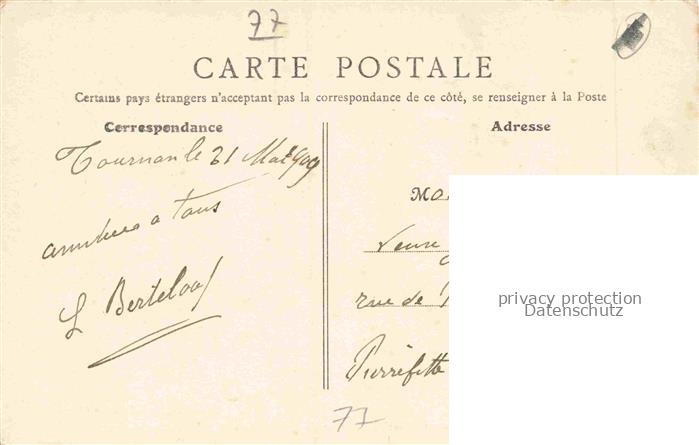 77
CARTE POSTALE
Certains pays étrangers n'acceptant pas la correspondance de ce côté, se renseigner à la Poste
Correspondance
Tournan le 21 Mai 909
a tous
L Berteloot
Adresse
Mo
rue de
Pierrefitte
privacy protection
Datenschutz
77